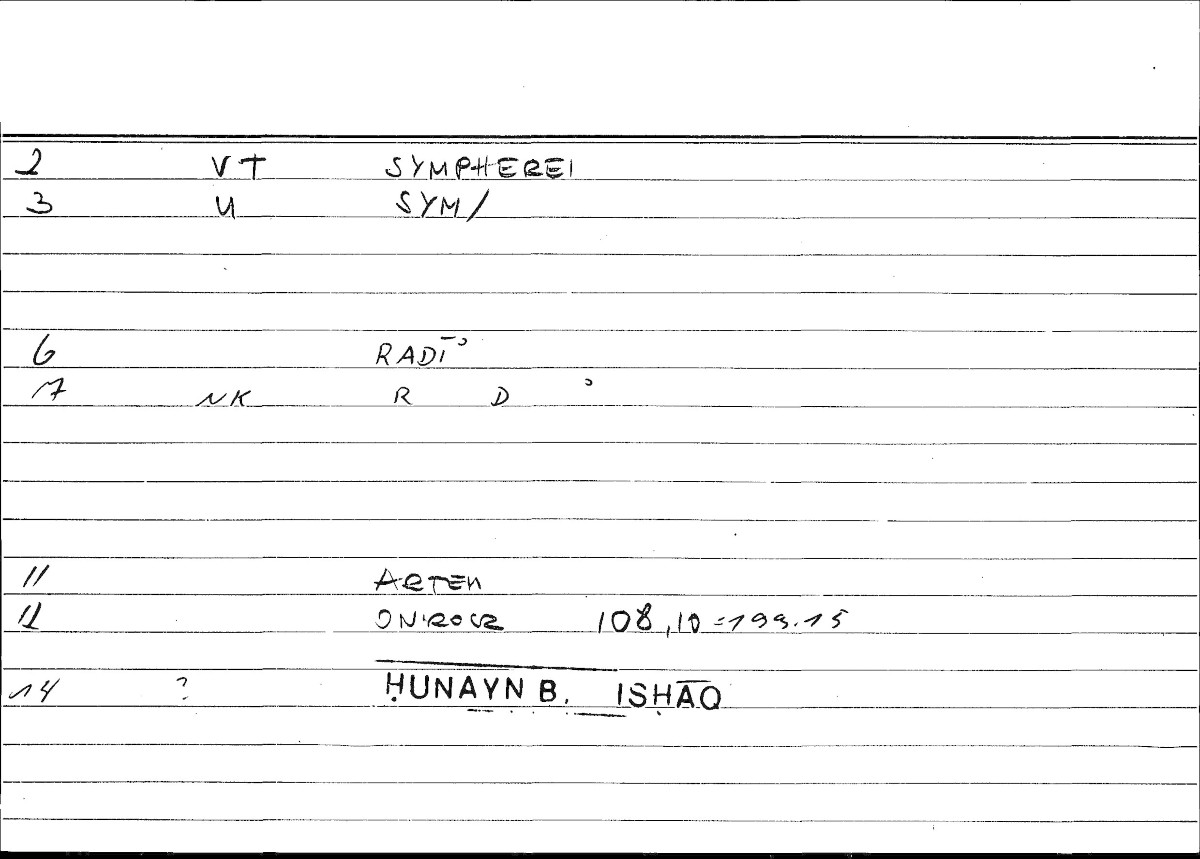 2 VT SYMPHEREI
3 U SYM/
6 RADĪʾ
7 NK R D ʾ
11 ARTEM
12 ONIROCR 108,10=199.15
14 ? ḤUNAYN B. ISḤĀQ